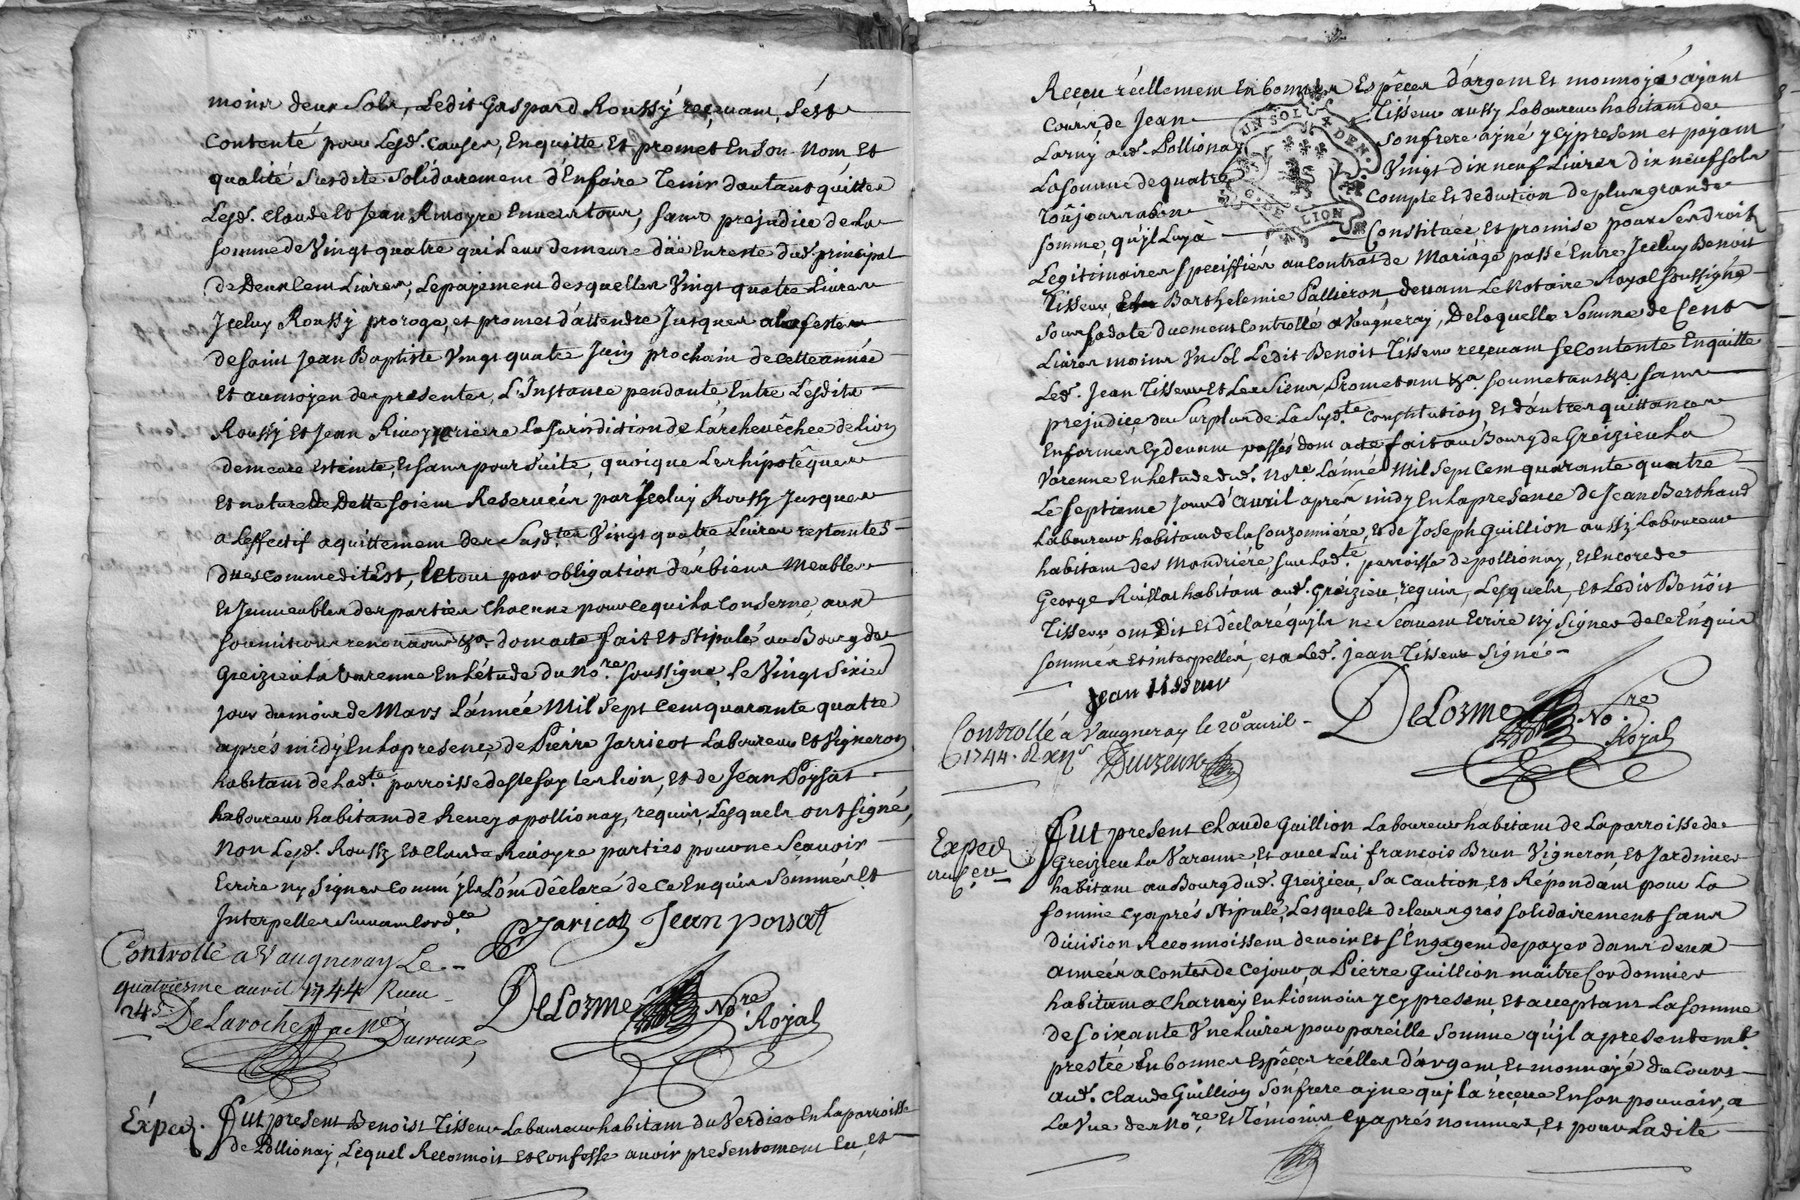 moins deux sols, Ledit Gaspard Roussy reçevant, s'est
Contenté pour Lesd. Causes, Enquitte Et promet En son Nom Et
qualité Susdite solidairement d'En faire Tenir d'autant quitte
Lesd. Claude Et Jean Rivoyre Envers tour, sans prejudice de La
somme de Vingt quatre qui Leur demeure düe En reste dud. principal
de Deux Cent Livres, Le payement desquelles Vingt quatre Livres
Iceluy Roussy proroge, et promet d'attendre Jusques a La feste
de saint Jean Baptiste Vingt quatre Juin prochain de cette année
Et au moyen des presentes, L'Instance pendante, Entre Lesdits
Roussy Et Jean Rivoyre rierre La Jurisdiction de L'archevêchée de Lion
demeure Eteinte, Et sans poursuite, quoique Les hipotêques
Et nature de Dette soient Reservées par Iceluy Roussy Jusques
a L'effectif aquittement des Susd.tes Vingt quatre Livres restantes
Dues comme dit Est, Le tout par obligation des biens Meubles
Et Immeubles des parties Chacune pour ce qui La Conserne, aux
soumitions renonciations &a. dont acte fait Et stipulé au Bourg de
Greizieu La Varenne En L'étude du No.re soussigné, Le Vingt sixie
jour du mois de Mars L'année Mil Sept Cent quarante quatre
aprés midy En La presence, de Pierre Jarricot Laboureur Et Vigneron
habitant de Lad.te parroisse de ste foy Les Lion, Et de Jean Poysat
Laboureur habitant de heney a pollionay, requis, Lesquels ont signé,
Non Lesd. Roussy Et Claude Rivoyre parties pour ne Scavoir
Ecrire ny Signer Comm'jls L'ont Dêclaré de Ce Enquis Sommés Et
Interpellés Suivant Lord.ce
Jaricot Jean poisat
Controllé a Vaugneray Le
quatriesme avril 1744 Receu
24s. DeLaroche Ducreux
DeLorme No.re Royal
Exped. Fut present Benoist Tisseur Laboureur habitant du Verdier En La parroisse
de Pollionay, Lequel Reconnoit Et Confesse avoir presentement Eu, Et
Reçeu réellement En bonnes Espêces d'argent Et monnoyé ayant
Cours, de Jean Tisseur aussy Laboureur habitant de
Laruy aud. Pollionay son frere ainé y Cy present et payant
La somme de quatre Vingt dix neuf Livres dix neuf sols
Toûjours a bon Compte Et deduction de plus grande
somme qu'jl Luy a Constituée Et promise pour Ses droits
UN SOL 4 DEN.
G. DE LION
Legitimaires speciffiés au Contrat de Mariage passé Entre Iceluy Benoit
Tisseur, Et Barthelemie Pallieron, devant Le Notaire Royal soussigné
sous sa date duement Controllé a Vaugneray, De laquelle Somme de Cent
Livres moins Vn Sol Ledit Benoit Tisseur reçevant se Contente Enquitte
Led. Jean Tisseur Et Les Siens, Prometant &a. soumetant &a. sans
prejudice du Surplus de La Susd.te Constitution, Et d'autres quittances
En formes Cy devant passés dont acte fait aud. Bourg de Greizieu La
Varenne En L'etude dud. No.re L'année Mil Sept Cent quarante quatre
Le Septieme Jour d'avril aprés midy En La presence de Jean Berthaud
Laboureur habitant de La Couzonniére, Et de Joseph Guillion aussy Laboureur
habitant des Mondriére sur Lad.te parroisse de pollionay, Et Encore de
George Ruillat habitant aud. Greizieu, requis, Lesquels, Et Ledit Benôit
Tisseur ont Dit Et dêclaré qu'jls ne Scavent Ecrire ny Signer de ce Enquis
sommés Et interpellés, et a Led. Jean Tisseur Signé
jean tisseur
Controllé á Vaugneray le 20e avril
1744. Ducreux
DeLorme No.re Royal
Exped
Fut present Claude Guillion Laboureur habitant de La parroisse de
Greizieu La Varenne, Et avec Lui françois Brun Vigneron, Et Jardinier
habitant au Bourg dud. Greizieu, Sa Caution, Et Répondant pour La
somme Cy aprés Stipulé, Lesquels de Leurs grés solidairement sans
Division Reconnoissent devoir Et s'Engagent de payer dans deux
années a Conter de Ce jour, a Pierre Guillion maitre Cordonnier
habitant a Charnay En Lionnois y Cy present, Et acceptant La somme
de soixante Vne Livres pour pareille somme qu'jl a presentemt.
prestée En bonnes Espêces réelles d'argent, Et monnoyé du Cours
aud. Claude Guillion Son frere ajné qui La réçeue En son pouvoir, a
La Vue des No.re Et Témoins Cy aprés nommés, Et pour La dite